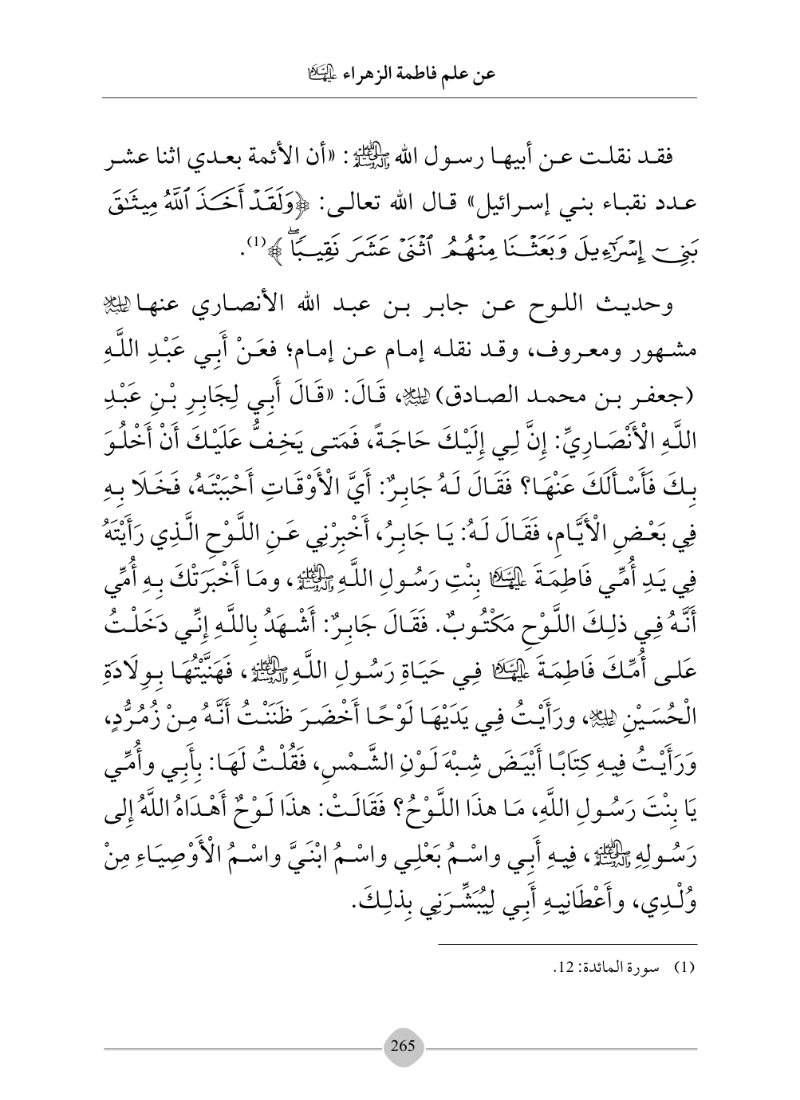 عن علم فاطمة الزهراء عليها السلام
فقد نقلت عن أبيها رسول الله ﷺ: «أن الأئمة بعدي اثنا عشر
عدد نقباء بني إسرائيل» قال الله تعالى: ﴿وَلَقَدْ أَخَذَ ٱللَّهُ مِيثَٰقَ
بَنِيٓ إِسْرَٰٓءِيلَ وَبَعَثْنَا مِنْهُمُ ٱثْنَيْ عَشَرَ نَقِيبًاۖ﴾(1).
وحديث اللوح عن جابر بن عبد الله الأنصاري عنها عليها السلام
مشهور ومعروف، وقد نقله إمام عن إمام؛ فعَنْ أَبِي عَبْدِ اللَّهِ
(جعفر بن محمد الصادق) عليه السلام، قَالَ: «قَالَ أَبِي لِجَابِرِ بْنِ عَبْدِ
اللَّهِ الْأَنْصَارِيِّ: إِنَّ لِي إِلَيْكَ حَاجَةً، فَمَتى يَخِفُّ عَلَيْكَ أَنْ أَخْلُوَ
بِكَ فَأَسْأَلَكَ عَنْهَا؟ فَقَالَ لَهُ جَابِرٌ: أَيَّ الْأَوْقَاتِ أَحْبَبْتَهُ، فَخَلَا بِهِ
فِي بَعْضِ الْأَيَّامِ، فَقَالَ لَهُ: يَا جَابِرُ، أَخْبِرْنِي عَنِ اللَّوْحِ الَّذِي رَأَيْتَهُ
فِي يَدِ أُمِّي فَاطِمَةَ عليها السلام بِنْتِ رَسُولِ اللَّهِ ﷺ، ومَا أَخْبَرَتْكَ بِهِ أُمِّي
أَنَّهُ فِي ذلِكَ اللَّوْحِ مَكْتُوبٌ. فَقَالَ جَابِرٌ: أَشْهَدُ بِاللَّهِ إِنِّي دَخَلْتُ
عَلى أُمِّكَ فَاطِمَةَ عليها السلام فِي حَيَاةِ رَسُولِ اللَّهِ ﷺ، فَهَنَّيْتُهَا بِوِلَادَةِ
الْحُسَيْنِ عليه السلام، ورَأَيْتُ فِي يَدَيْهَا لَوْحًا أَخْضَرَ ظَنَنْتُ أَنَّهُ مِنْ زُمُرُّدٍ،
وَرَأَيْتُ فِيهِ كِتَابًا أَبْيَضَ شِبْهَ لَوْنِ الشَّمْسِ، فَقُلْتُ لَهَا: بِأَبِي وأُمِّي
يَا بِنْتَ رَسُولِ اللَّهِ، مَا هذَا اللَّوْحُ؟ فَقَالَتْ: هذَا لَوْحٌ أَهْدَاهُ اللَّهُ إِلى
رَسُولِهِ ﷺ، فِيهِ أَبِي واسْمُ بَعْلِي واسْمُ ابْنَيَّ واسْمُ الْأَوْصِيَاءِ مِنْ
وُلْدِي، وأَعْطَانِيهِ أَبِي لِيُبَشِّرَنِي بِذلِكَ.
(1) سورة المائدة: 12.
265